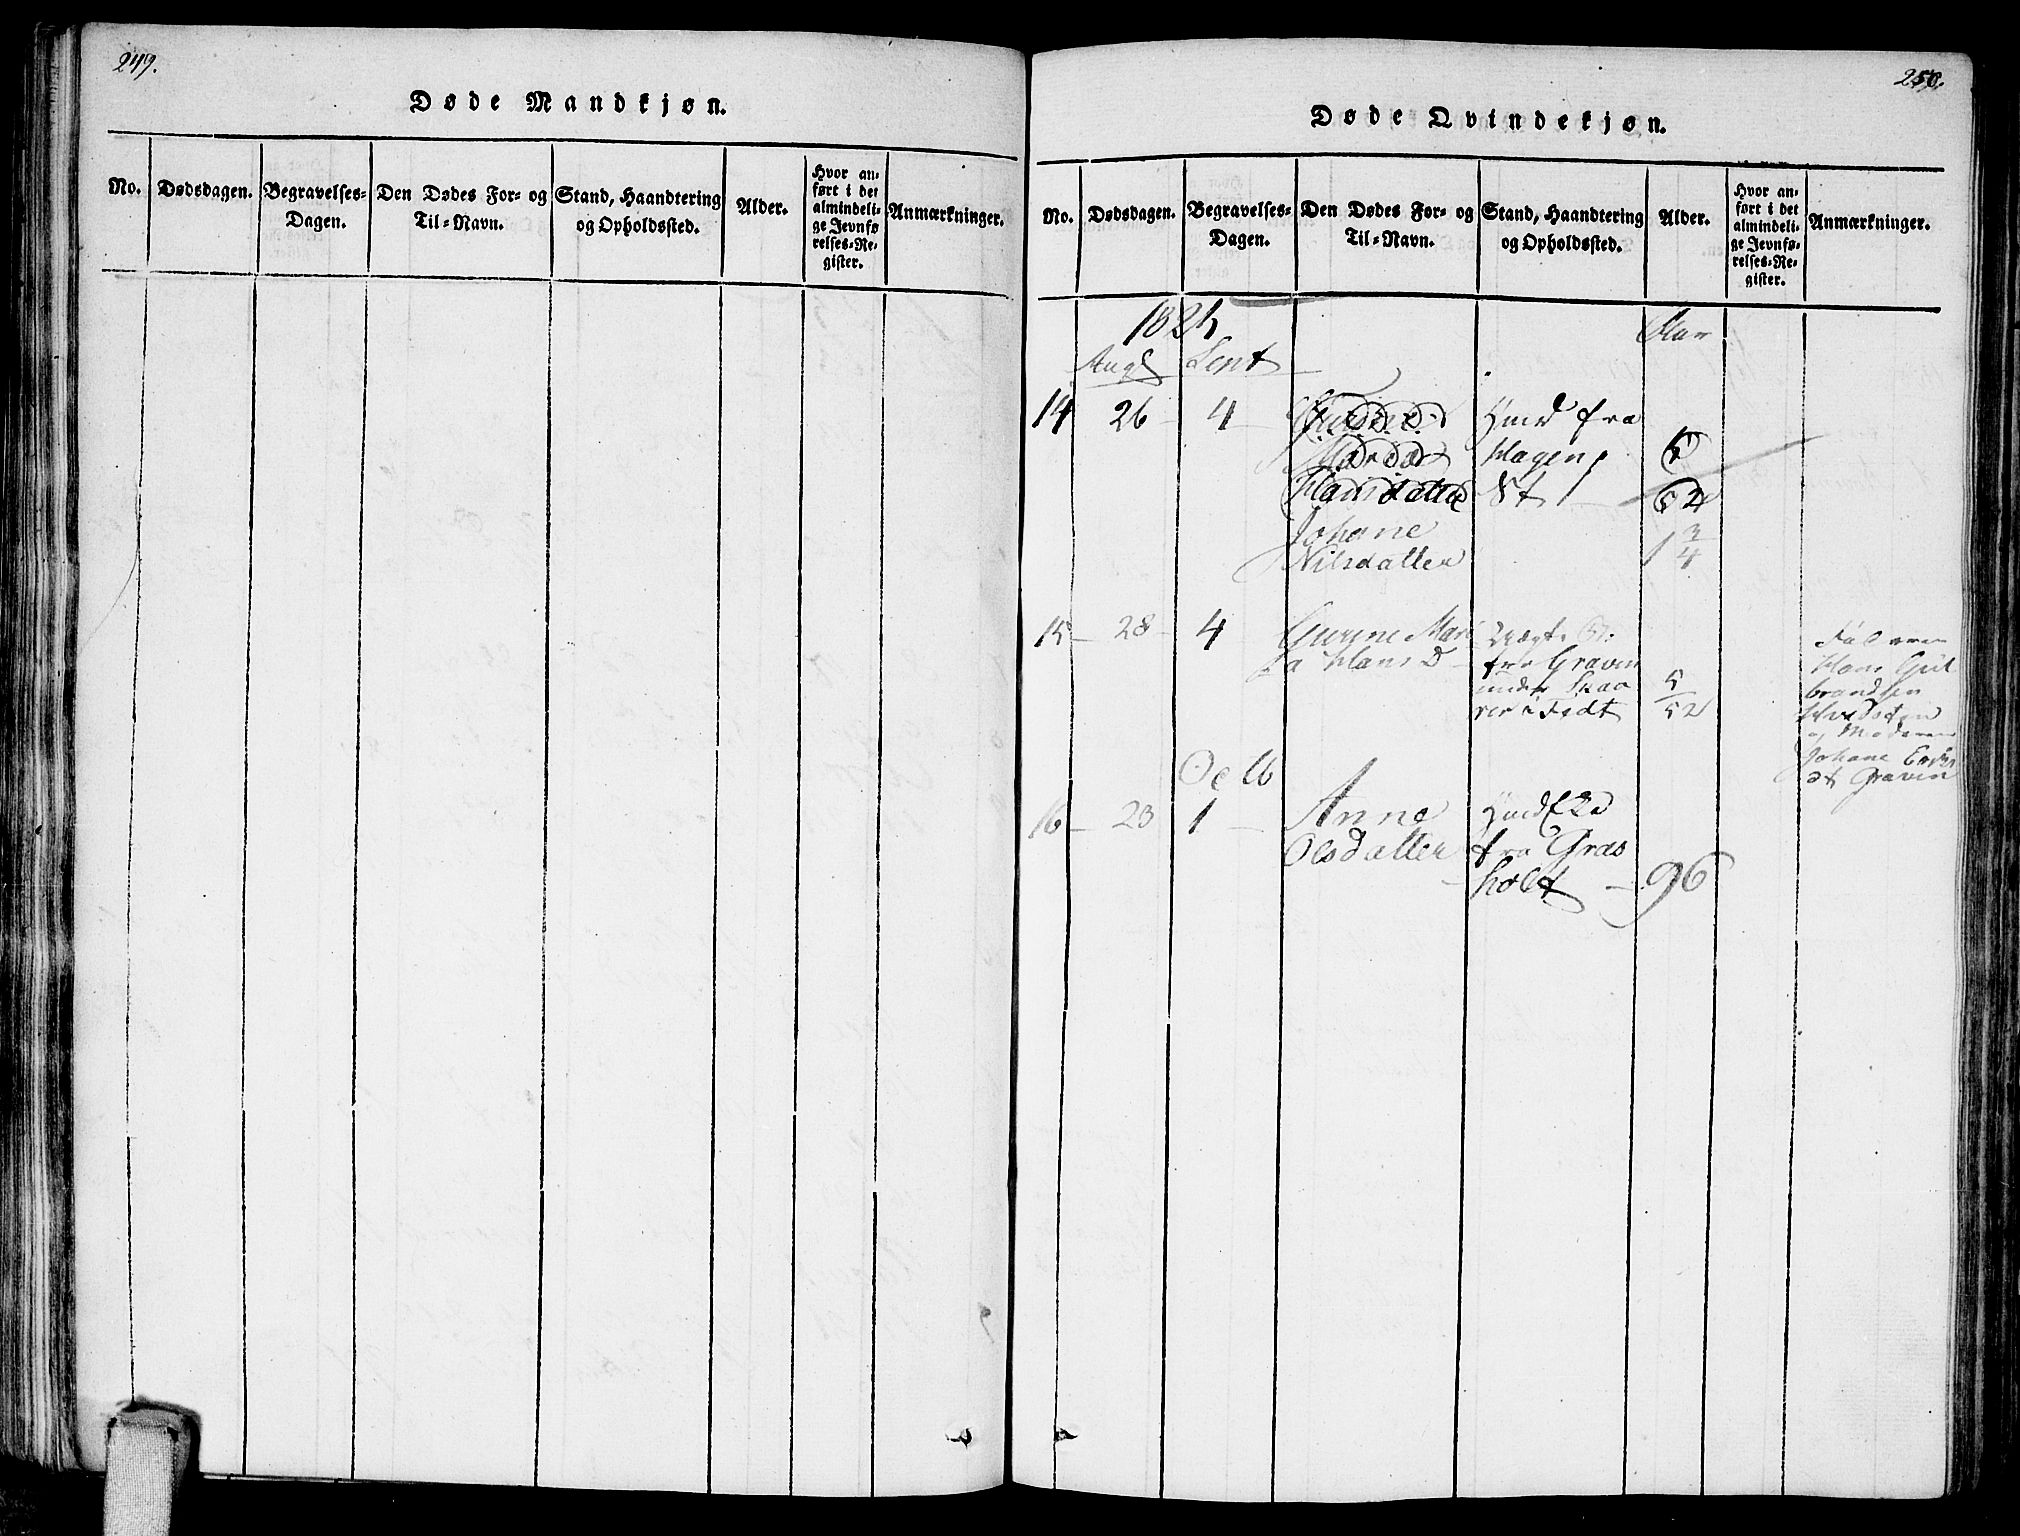 249.
Døde Mandkjøn.
No.
Dødsdagen.
Begravelses-
Dagen.
Den Dødes For- og
Til-Navn.
Stand, Haandtering
og Opholdssted.
Alder.
Hvor an-
ført i det
almindeli-
ge Jevnfø-
relses-Re-
gister.
Anmærkninger.
250.
Døde Qvindekjøn.
No.
Dødsdagen.
Begravelses-
Dagen.
Den Dødes For- og
Til-Navn.
Stand, Haandtering
og Opholdssted.
Alder.
Hvor an-
ført i det
almindeli-
ge Jevnfø-
relses-Re-
gister.
Anmærkninger.
1825
Aar
Augs Sept
14 26 4
Hansdatter
Johane
Nilsdatter
fra
Hagen
5
52
1 3/4
15 28 4
Hans D
fra Graven
under Skaa
rer i Fedt
5/52
Faderen
Hans Gul
brandsen
Hvidsten
og Moderen
Johane
Graven
Octb
16 23 1
Anne
Olsdatter
fra Græs
holt
96